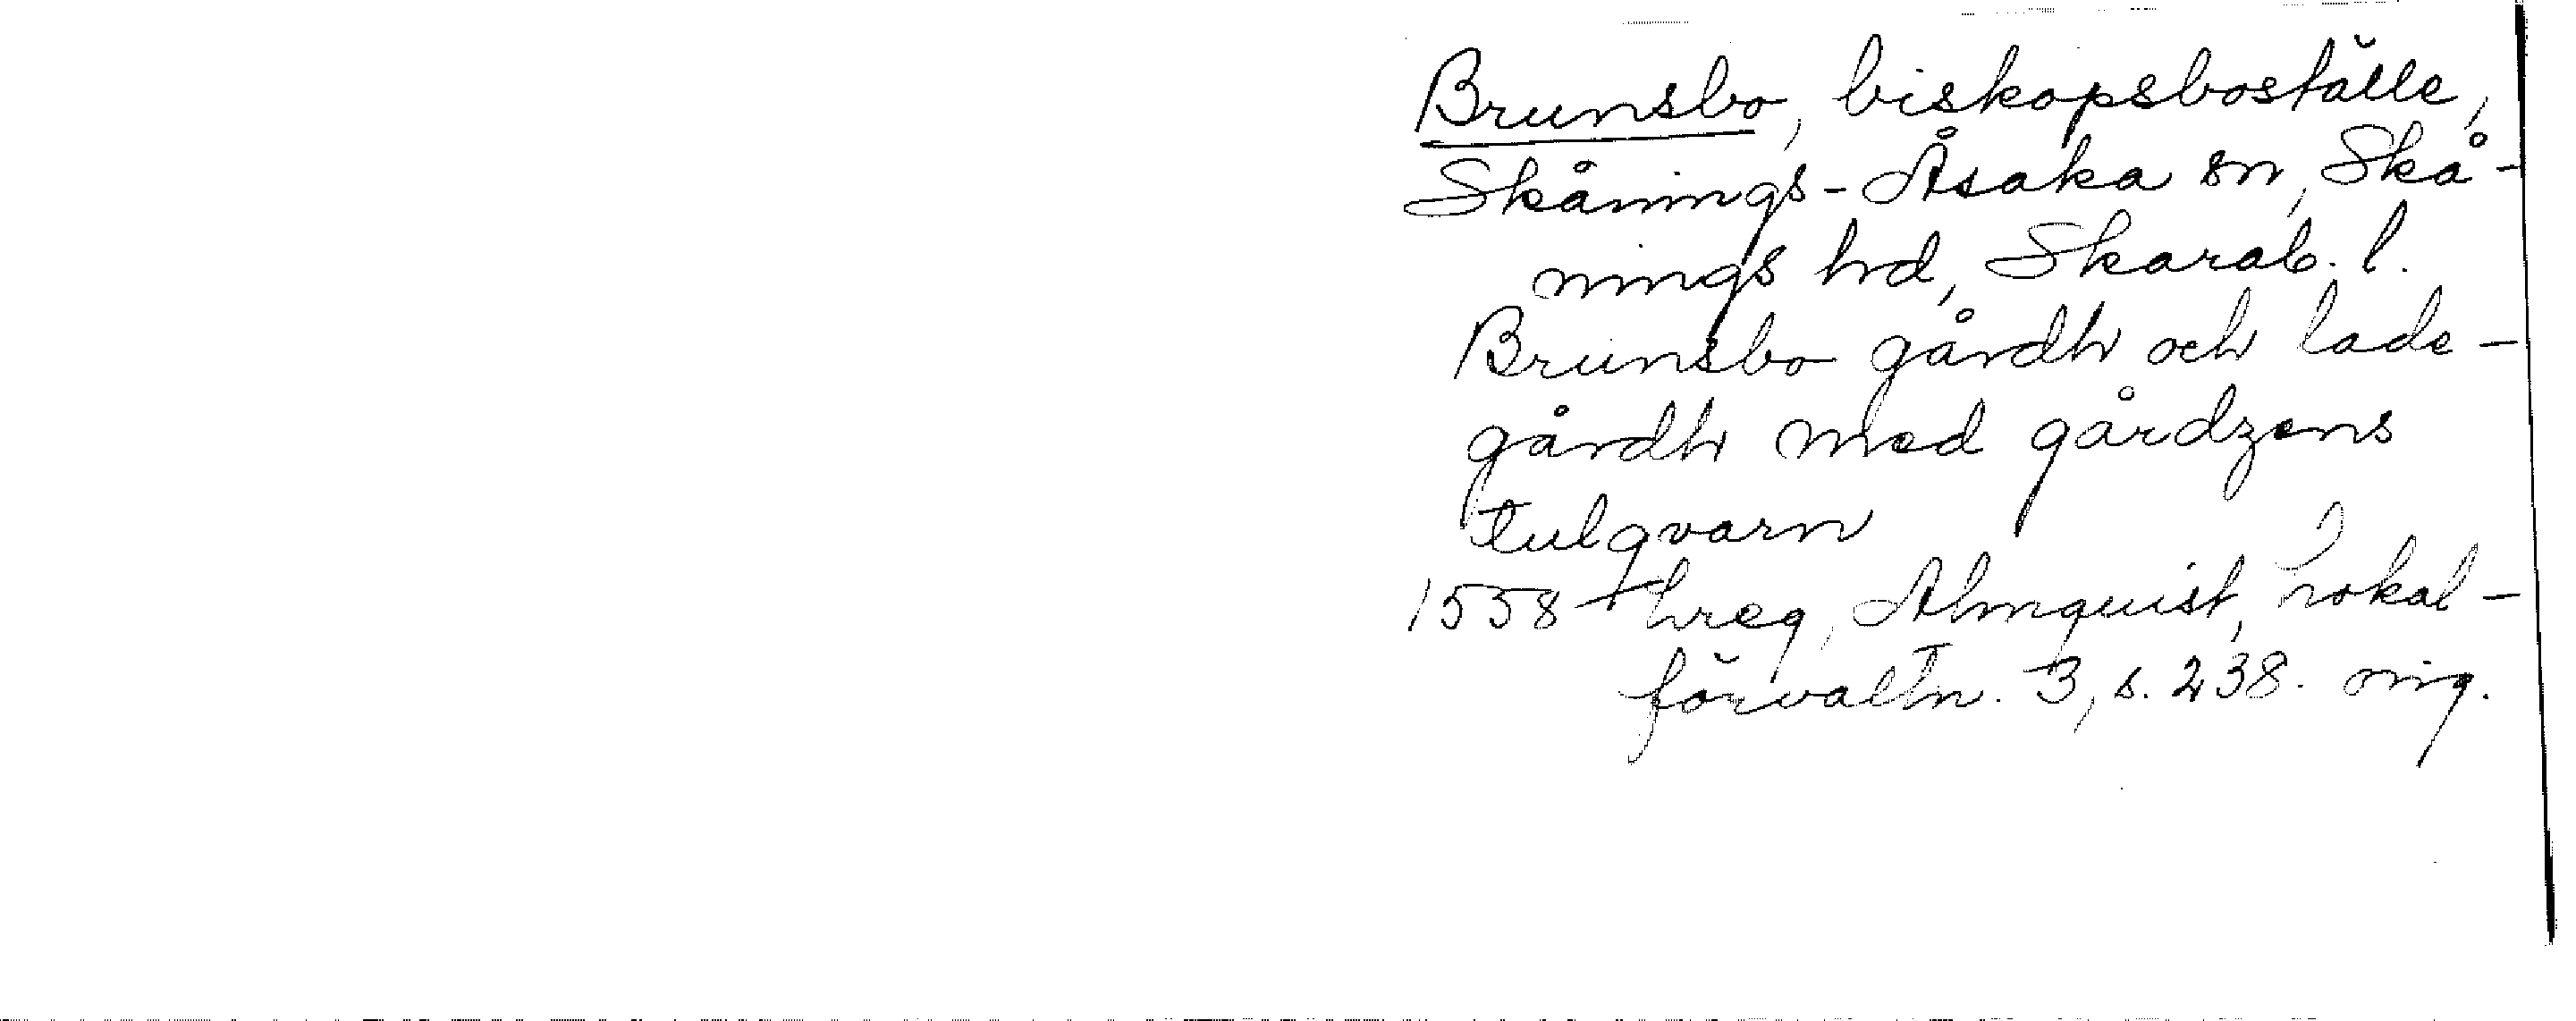 Brunsbo, biskopsboställe,
Skånings-Åsaka sn, Skå-
nings hd, Skarab. l.
Brunsbo gårdh och lade-
gårdh med gårdzens
tulqvarn
1558 Almquist, Lokal-
förvaltn. 3, s. 238. orig.